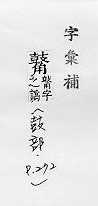 字彙補
鼖字
之譌
〈鼓部·
P.292〉